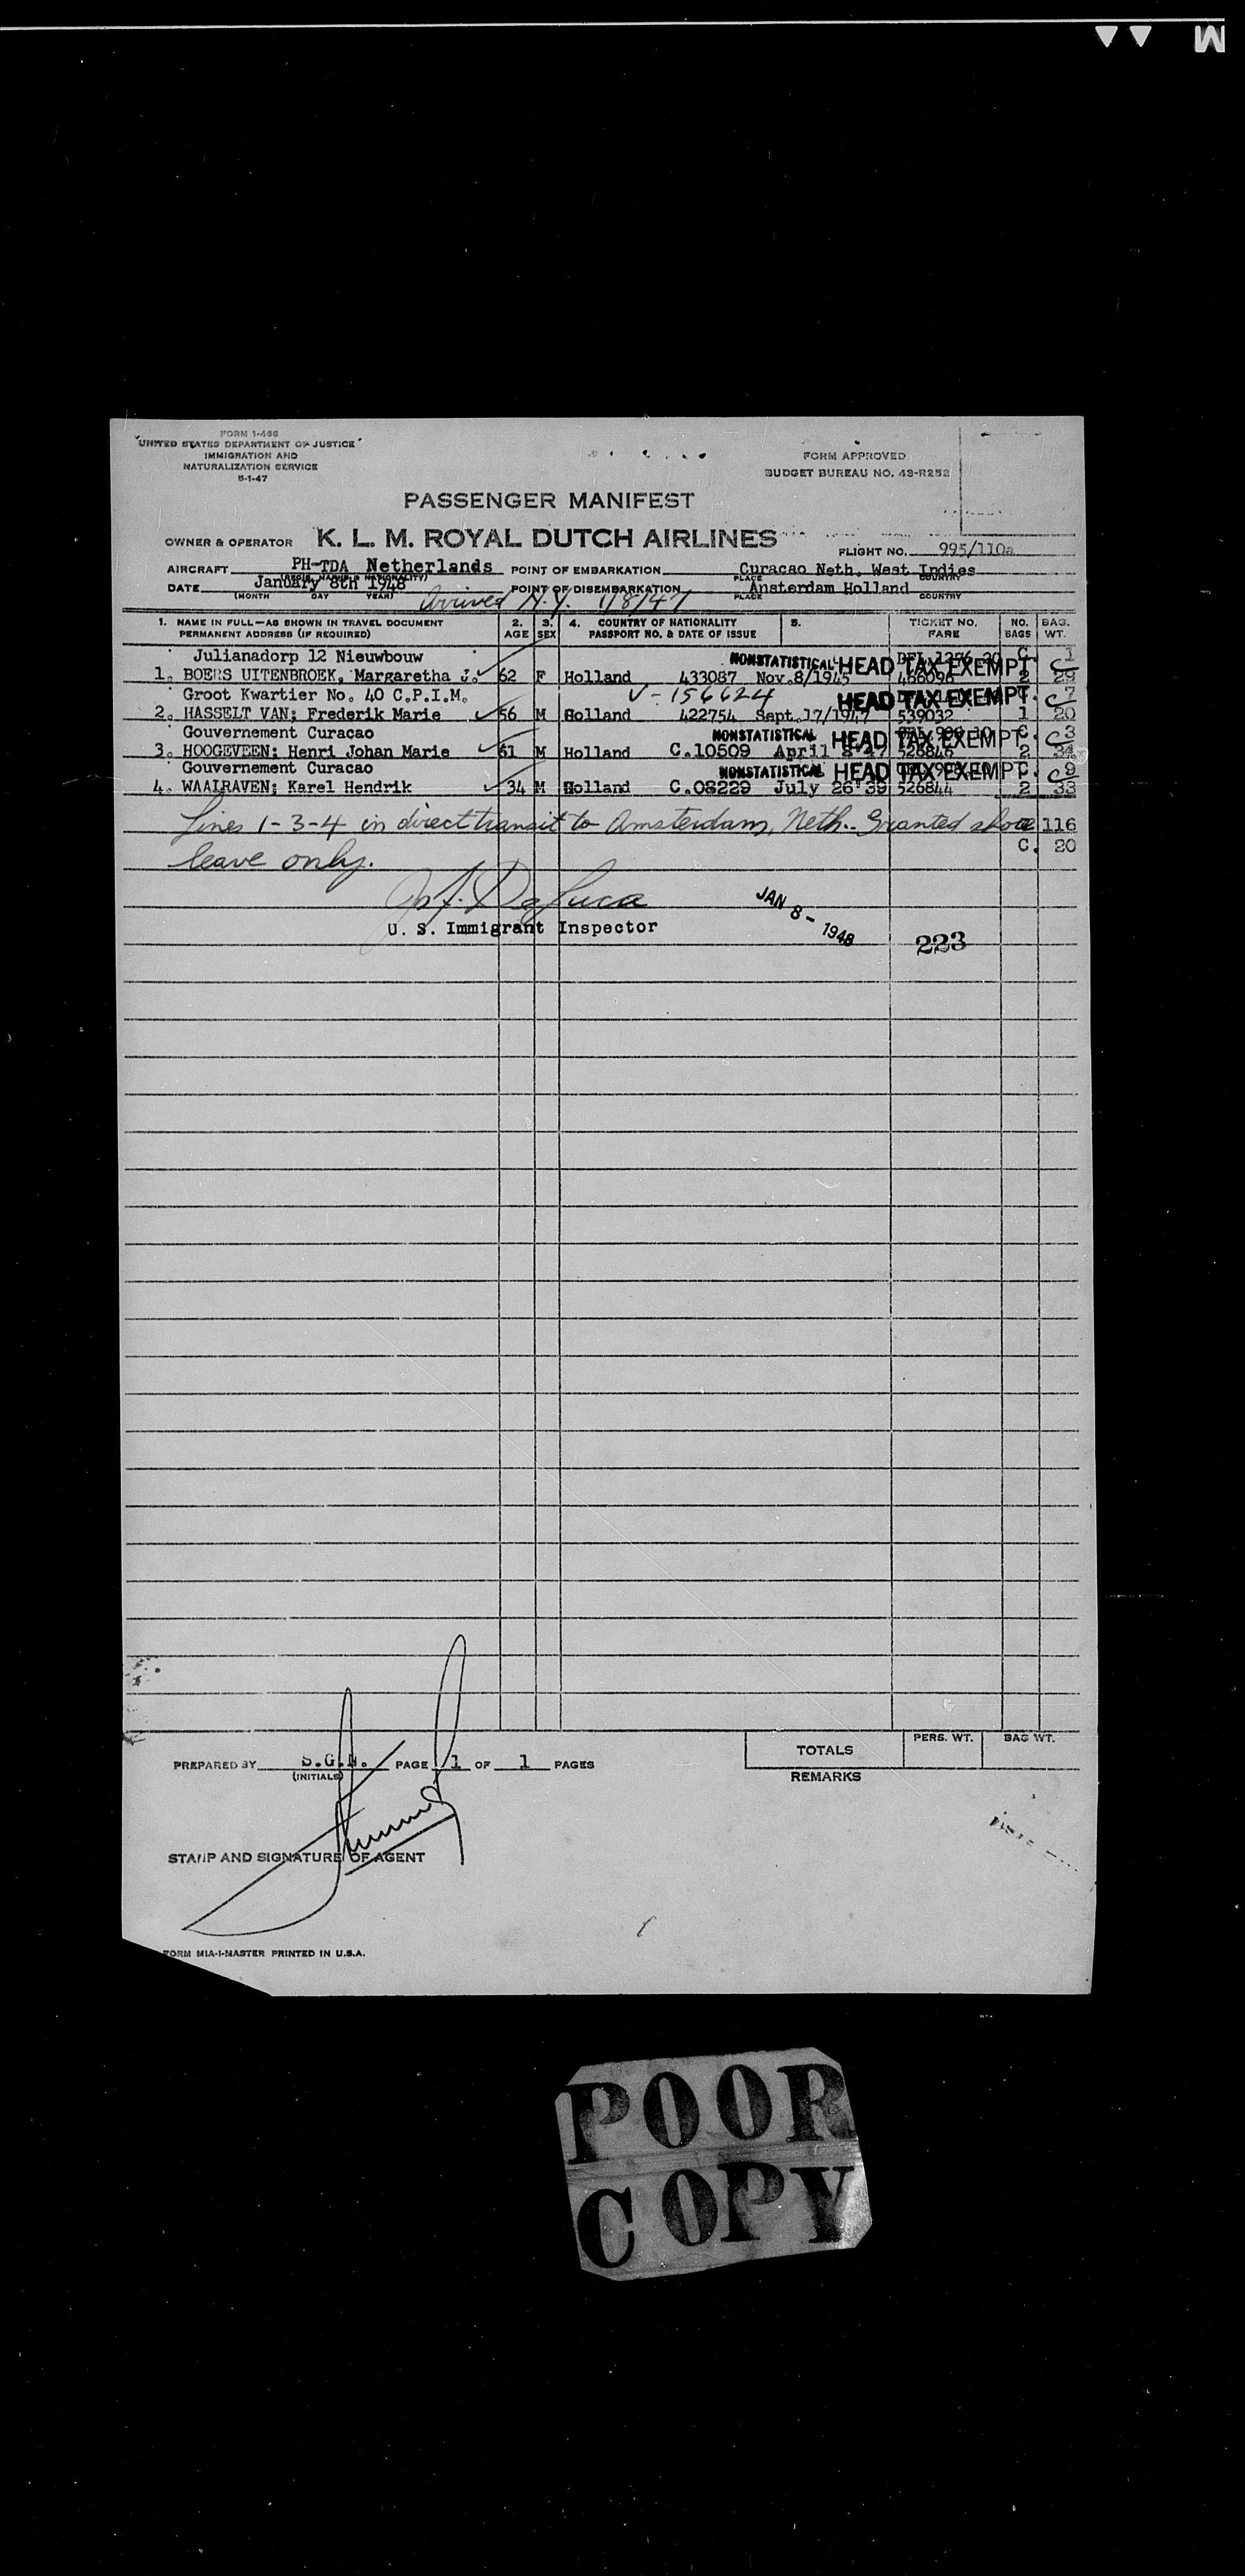 M
FORM 1-466
UNITED STATES DEPARTMENT OF JUSTICE
IMMIGRATION AND
NATURALIZATION SERVICE
5-1-47
FORM APPROVED
BUDGET BUREAU NO. 43-R252
PASSENGER MANIFEST
OWNER & OPERATOR K. L. M. ROYAL DUTCH AIRLINES
FLIGHT NO. 995/110a
AIRCRAFT PH-TDA Netherlands POINT OF EMBARKATION Curacao Neth. West Indies
PLACE COUNTRY
DATE January 8th 1948 POINT OF DISEMBARKATION Amsterdam Holland
(MONTH DAY YEAR) PLACE COUNTRY
Arrived N.Y. 1/8/47
1. NAME IN FULL—AS SHOWN IN TRAVEL DOCUMENT 2. 3. 4. COUNTRY OF NATIONALITY 5. TICKET NO. NO. BAG.
PERMANENT ADDRESS (IF REQUIRED) AGE SEX PASSPORT NO. & DATE OF ISSUE FARE BAGS WT.
Julianadorp 12 Nieuwbouw C. 1
NONSTATISTICAL HEAD TAX EXEMPT. C
1. BOERS UITENBROEK, Margaretha J. 62 F Holland 433087 Nov.8/1945 466096 2 29
Groot Kwartier No. 40 C.P.I.M. V-156624 HEAD TAX EXEMPT. C 7
2. HASSELT VAN; Frederik Marie 56 M Holland 422754 Sept.17/1947 539032 1 20
Gouvernement Curacao NONSTATISTICAL HEAD TAX EXEMPT. C. C 3
3. HOOGEVEEN; Henri Johan Marie 61 M Holland C.10509 April 526845 2 34
Gouvernement Curacao NONSTATISTICAL HEAD TAX EXEMPT. C. C 9
4. WAALRAVEN; Karel Hendrik 34 M Holland C.08229 July 26'39 526844 2 33
Lines 1-3-4 in direct transit to Amsterdam, Neth. Granted shore 116
leave only. C. 20
U. S. Immigrant Inspector
JAN 8 - 1948
223
PREPARED BY S.G.N. PAGE 1 OF 1 PAGES
(INITIALS)
TOTALS PERS. WT. BAG WT.
REMARKS
STAMP AND SIGNATURE OF AGENT
FORM MIA-I-MASTER PRINTED IN U.S.A.
POOR
COPY